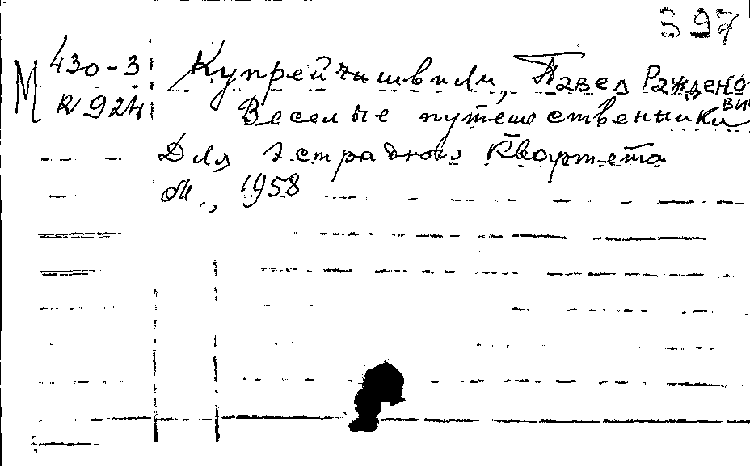 397
М 430-3 Купрейчишвили, Павел Ражденович
К 924 Веселые путешественники
Для эстрадного квартета
М., 1958